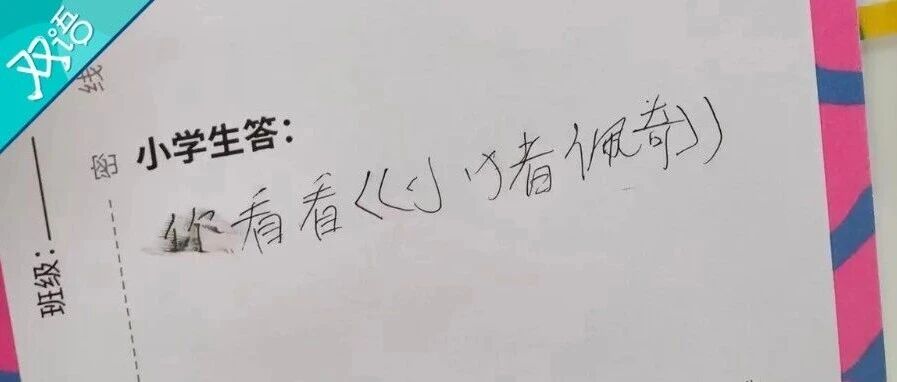 双语
线
密
小学生答：
你看看《小猪佩奇》
班级：